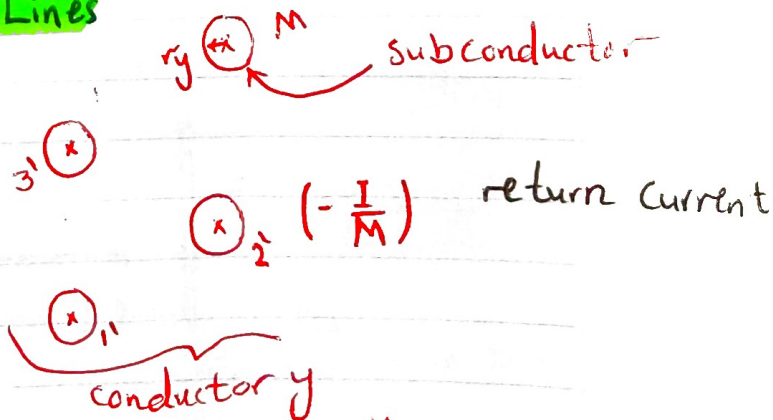 Lines
M
ry
subconductor
3'
(-I/M)
return current
2'
1'
conductor y